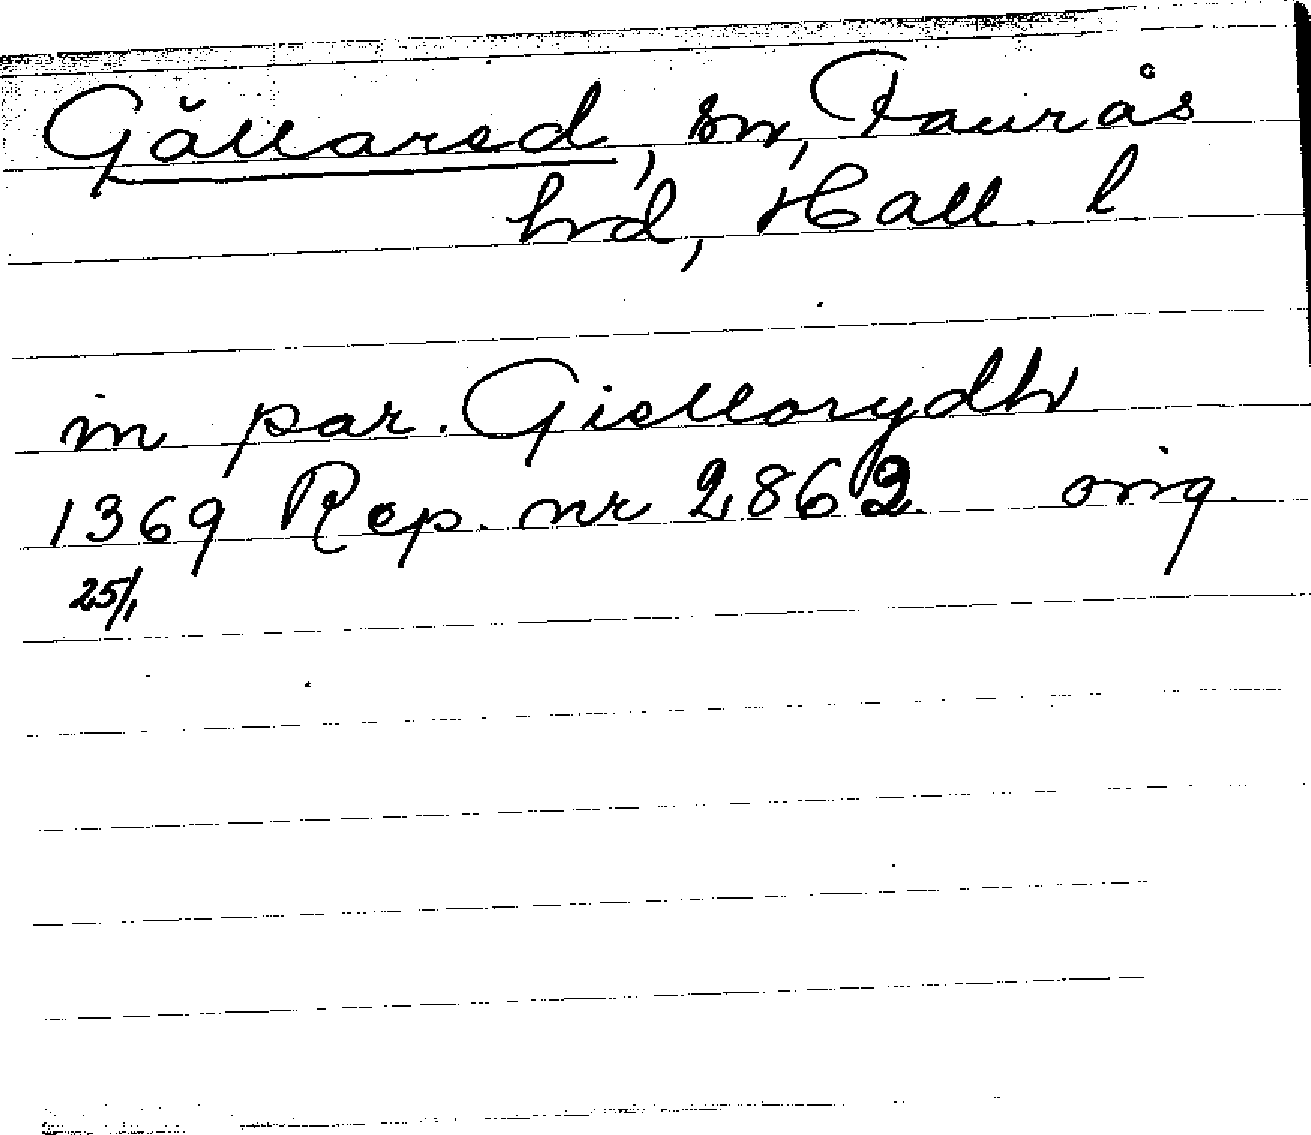 Gällared, sn, Faurås
hrd, Hall. l
in par. Giellorydh
1369 Rep. nr 2862 orig.
25/1